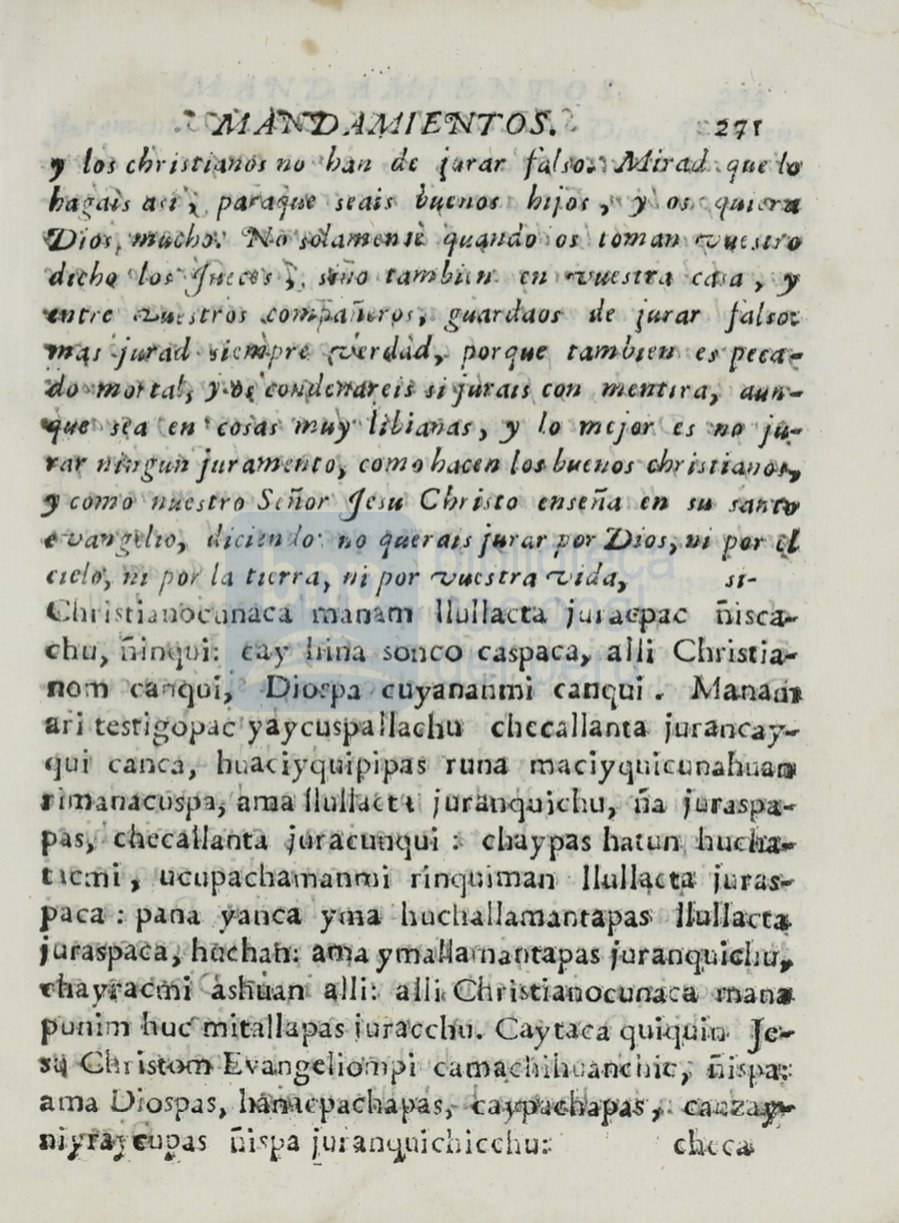 MANDAMIENTOS. 271
y los christianos no han de jurar falso. Mirad que lo
hagais asi, paraque seais buenos hijos, y os quiera
Dios mucho. No solamente quando os toman vuestro
dicho los Jueces, sino tambien en vuestra casa, y
entre vuestros compañeros, guardaos de jurar falso:
mas jurad siempre verdad, porque tambien es peca-
do mortal, y os condenareis si jurais con mentira, aun-
que sea en cosas muy libianas, y lo mejor es no ju-
rar ningun juramento, como hacen los buenos christianos,
y como nuestro Señor Jesu Christo enseña en su santo
evangelio, diciendo: no querais jurar por Dios, ni por el
cielo, ni por la tierra, ni por vuestra vida, si-
Christianocunaca manam llullacta juracpac ñisca-
chu, ñinqui: cay hina sonco caspaca, alli Christia-
nom canqui, Diospa cuyananmi canqui. Manam
ari testigopac yaycuspallachu checallanta jurancay-
qui canca, huaciyquipipas runa maciyquicunahuan
rimanacuspa, ama llullacta juranquichu, ña juraspa-
pas, checallanta juracunqui: chaypas hatun hucha-
tacmi, ucupachamanmi rinquiman llullacta juras-
paca: pana yanca yma huchallamantapas llullacta
juraspaca, huchan: ama ymallamantapas juranquichu,
chayracmi ashuan alli: alli Christianocunaca mana
punim huc mitallapas juracchu. Caytaca quiquin Je-
su Christom Evangeliompi camachihuanchic, ñispa:
ama Diospas, hanacpachapas, caypachapas, cauzay-
niyraycupas ñispa juranquichicchu: checa